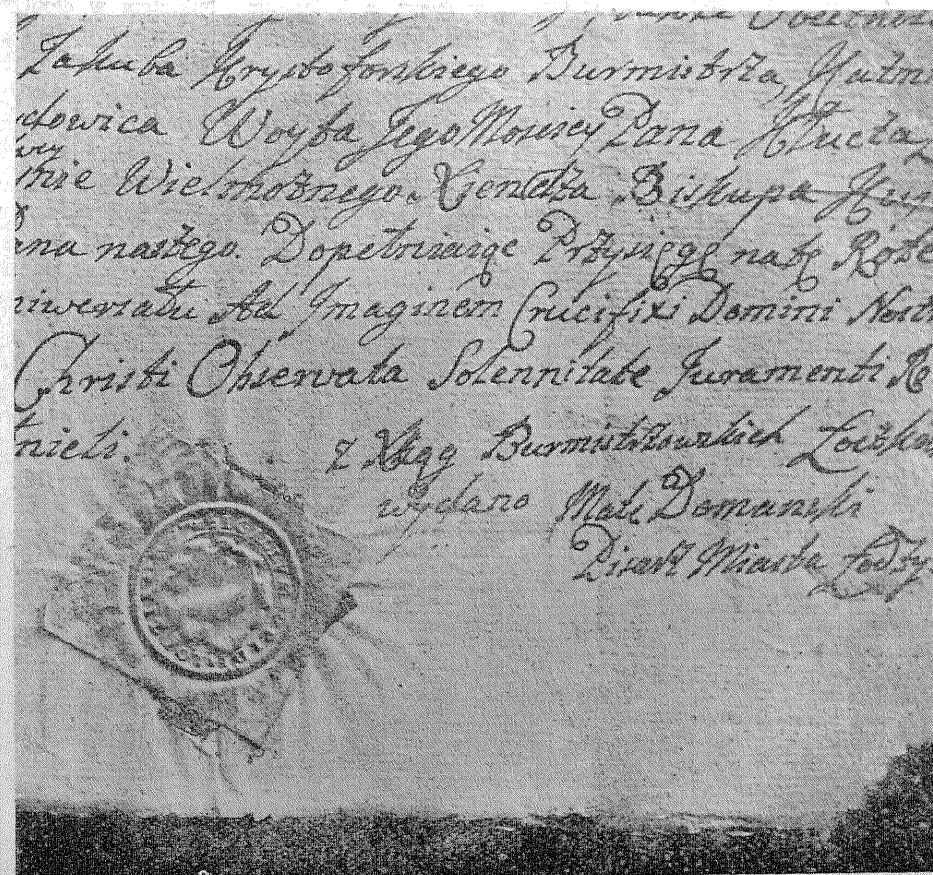 Jakuba Krystoforskiego Burmistrża, Kazm
dowica Woyta Jego Mouscy Pana Klucża
wy
Wielmożnego Xiendża Biskupa Kuj
Pana nasżego. Dopełniaiąc Prżysięgę na tę Rotę
niwersału Ad Imaginem Crucifixi Domini Nostr
Christi Observata Solennitate Juramenti
łnieli. z Xsąg Burmistrżowskich
wydano Mat: Domanski
Pisarż Miasta Łodży